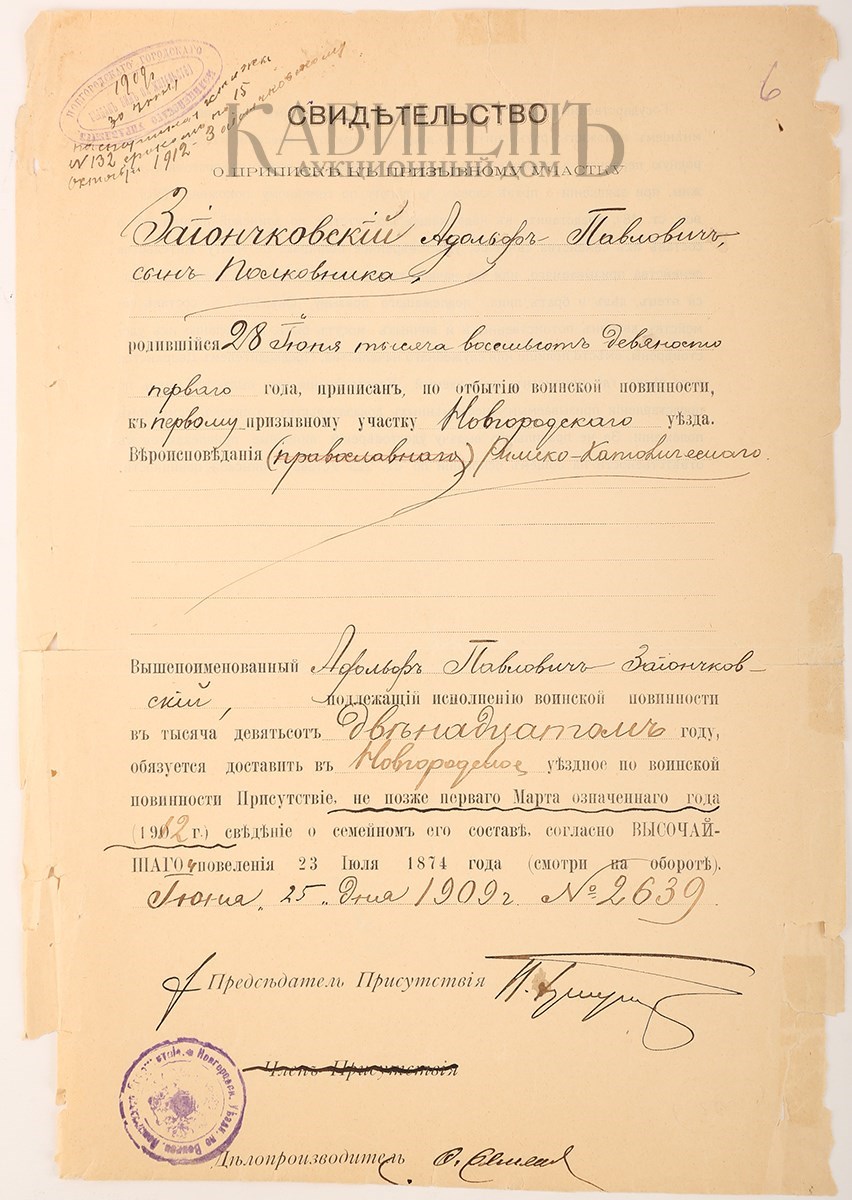 НОВГОРОДСКАГО ГОРОДСКАГО
1909 г.
30 Іюня
паспортная книжка
N 132 срокомъ по 15
Октября 1912 Заіончковскому
6
КАБИНЕТЪ
АУКЦИОННЫЙ ДОМ
СВИДѢТЕЛЬСТВО
О ПРИПИСКѢ КЪ ПРИЗЫВНОМУ УЧАСТКУ
Заіончковскій Адольфъ Павловичъ,
сынъ Полковника,
родившійся 28 Іюня тысяча восемьсотъ девяносто
перваго года, приписанъ, по отбытію воинской повинности,
къ первому призывному участку Новгородскаго уѣзда.
Вѣроисповѣданія (православнаго) Римско-Католическаго.
Вышепоименованный Адольфъ Павловичъ Заіончков-
скій, подлежащій исполненію воинской повинности
въ тысяча девятьсотъ двѣнадцатомъ году,
обязуется доставить въ Новгородское уѣздное по воинской
повинности Присутствіе, не позже перваго Марта означеннаго года
(1912 г.) свѣдѣніе о семейномъ его составѣ, согласно ВЫСОЧАЙ-
ШАГО повеленія 23 Іюля 1874 года (смотри на оборотѣ).
Іюня „25„ дня 1909 г. № 2639.
Предсѣдатель Присутствія
Членъ Присутствія
Новгородск. Уѣздн. по Воинск.
Дѣлопроизводитель